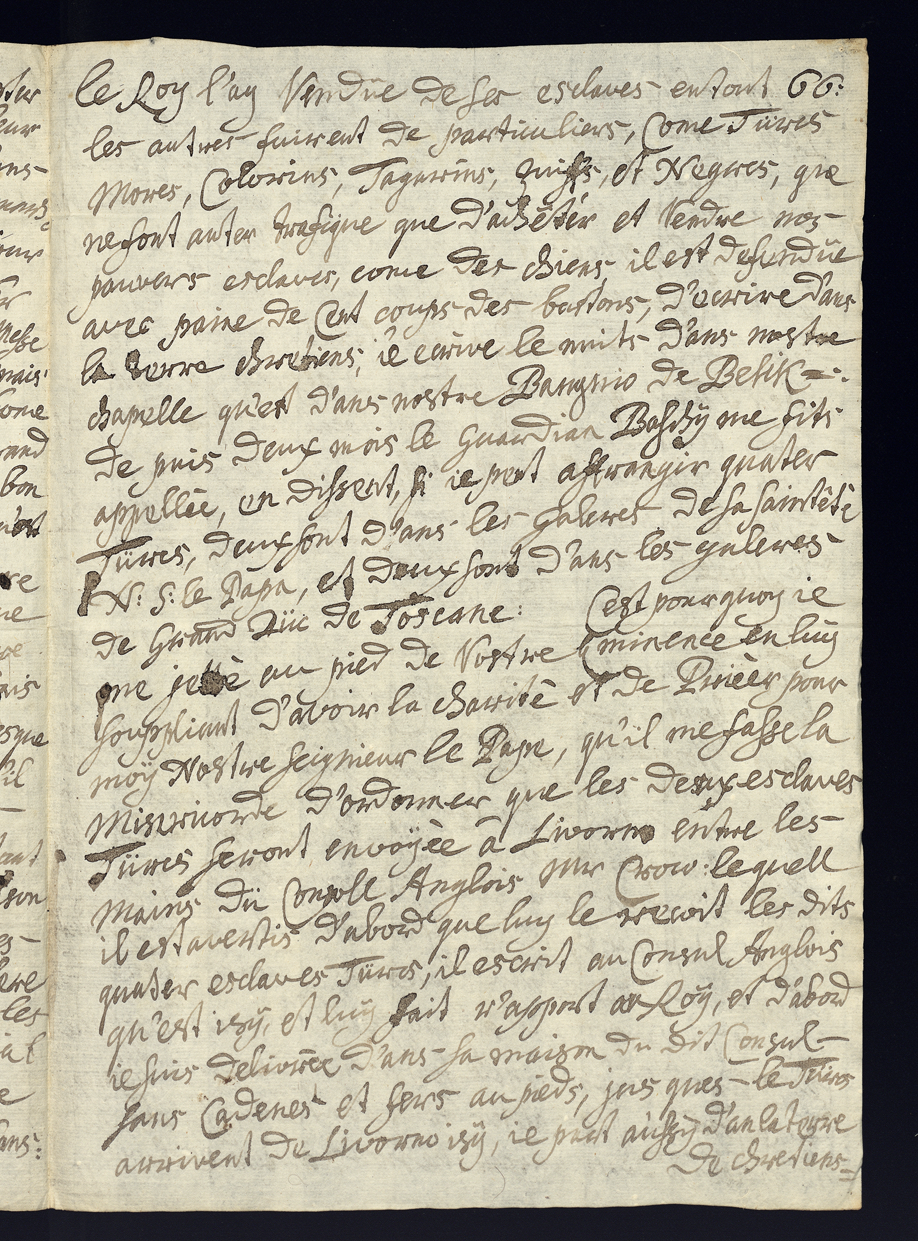 le Roy l'ay Vendüe de ses esclaves en tout 66:
les autres fuirent de particuliers, Come Türcs
Mores, Colorins, Tagarins, Juiffs, et Negres, que
ne font auter trafique que d'achêter et Vendre nos
pauvers esclaves, come des chiens il est defendüe
avec paine de Cent coups des bastons, d'ecrire d'ans
la terre chretiens, ie ecrive le nuits d'ans nostre
chapelle qu'est d'ans nostre Bangnio de Belik=:
de puis deux mois le Guardian Baschÿ me fits
appellèe, en dissent, si ie peut affrangir quater
Türcs, deux sont d'ans les galeres de sa saintêtè
N: S: le Papa, et deux sont d'ans les galeres
de Grand Düc de Toscane: C'est pourquoy ie
me jettè au pied de Vostre Eminence en luy
souppliant d'avoir la charitè et de Prièer pour
moÿ Nostre seignieur le Pape, qu'il me fasse la
Misericorde d'ordonner que les deux esclaves
Türcs seront envoÿèe â Livorno entre les
Mains Dü Consoll Anglois Mr Crow: lequell
il est avertis d'abord que luy le recoit les dits
quater esclaves Türcs, il escrit au Consul Anglois
qu'est icÿ, et luÿ fait r'apport au Roÿ, et d'abord
ie suis delivrèe d'ans sa maison du dit Consul
sans Cadenes et fers au pieds, jus ques le Türcs
arrivent de Livorno icÿ, ie part aüssÿ d'an la terre
de chretiens=